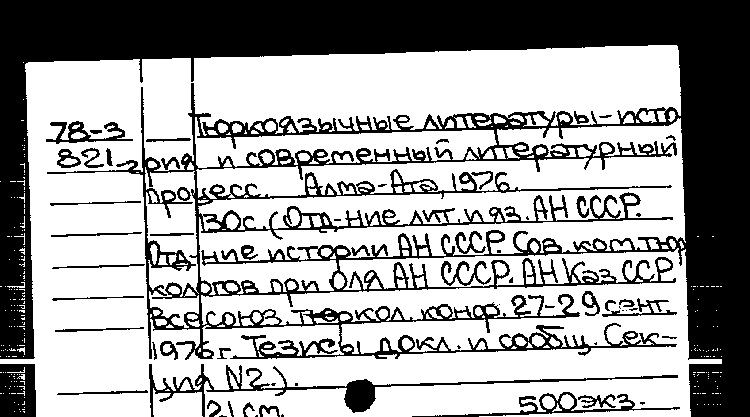 78-3
821-2
Тюркоязычные литературы-исто
рия и современный литературный
процесс. Алма-Ата, 1976.
130с. (Отд-ние лит. и яз. АН СССР.
Отд-ние истории АН СССР. Сов. ком. тюр
кологов при ОЛЯ АН СССР. АН Каз.ССР.
Всесоюз. тюркол. конф. 27-29 сент.
1976г. Тезисы докл. и сообщ. Сек-
ция N2.).
21см. 500экз.